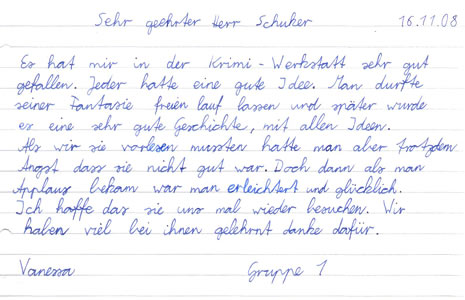 Sehr geehrter Herr Schuker 16.11.08
Es hat mir in der Krimi-Werkstatt sehr gut
gefallen. Jeder hatte eine gute Idee. Man durfte
seiner Fantasie freien lauf lassen und später wurde
es eine sehr gute Geschichte, mit allen Ideen.
Als wir sie vorlesen mussten hatte man aber trotzdem
Angst dass sie nicht gut war. Doch dann als man
Applaus bekam war man erleichtert und glücklich.
Ich hoffe das sie uns mal wieder besuchen. Wir
haben viel bei ihnen gelehrnt danke dafür.
Vanessa Gruppe 1